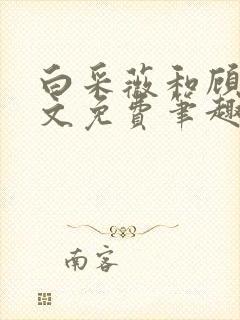 白采薇和顾
文免费笔趣
南客